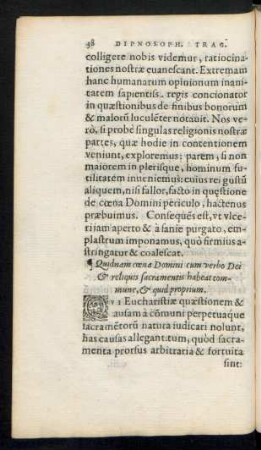 38 DIPNOSOPH. TRAG.
colligere nobis videmur, ratiocina-
tiones nostræ euanescant. Extremam
hanc humanarum opinionum inani-
tatem sapientiss. regis concionator
in quæstionibus de finibus bonorum
& malorū luculēter notauit. Nos ve-
rò, si probè singulas religionis nostræ
partes, quæ hodie in contentionem
veniunt, exploremus: parem, si non
maiorem in plerisque, hominum fu-
tilitatem inueniemus: cuius rei gustū
aliquem, nisi fallor, facto in quęstione
de cœna Domini periculo, hactenus
præbuimus. Consequēs est, vt vlce-
riam aperto & à sanie purgato, em-
plastrum imponamus, quò firmius a-
stringatur & coalescat.
¶ Quidnam cœnæ Domini cum verbo Dei
& reliquis sacramentis habeat com-
mune, & quid proprium.
QVi Eucharistiæ quæstionem &
causam à cōmuni perpetuaque
sacramētorū natura iudicari nolunt,
has causas allegant. tum, quòd sacra-
menta prorsus arbitraria & fortuita
sint: